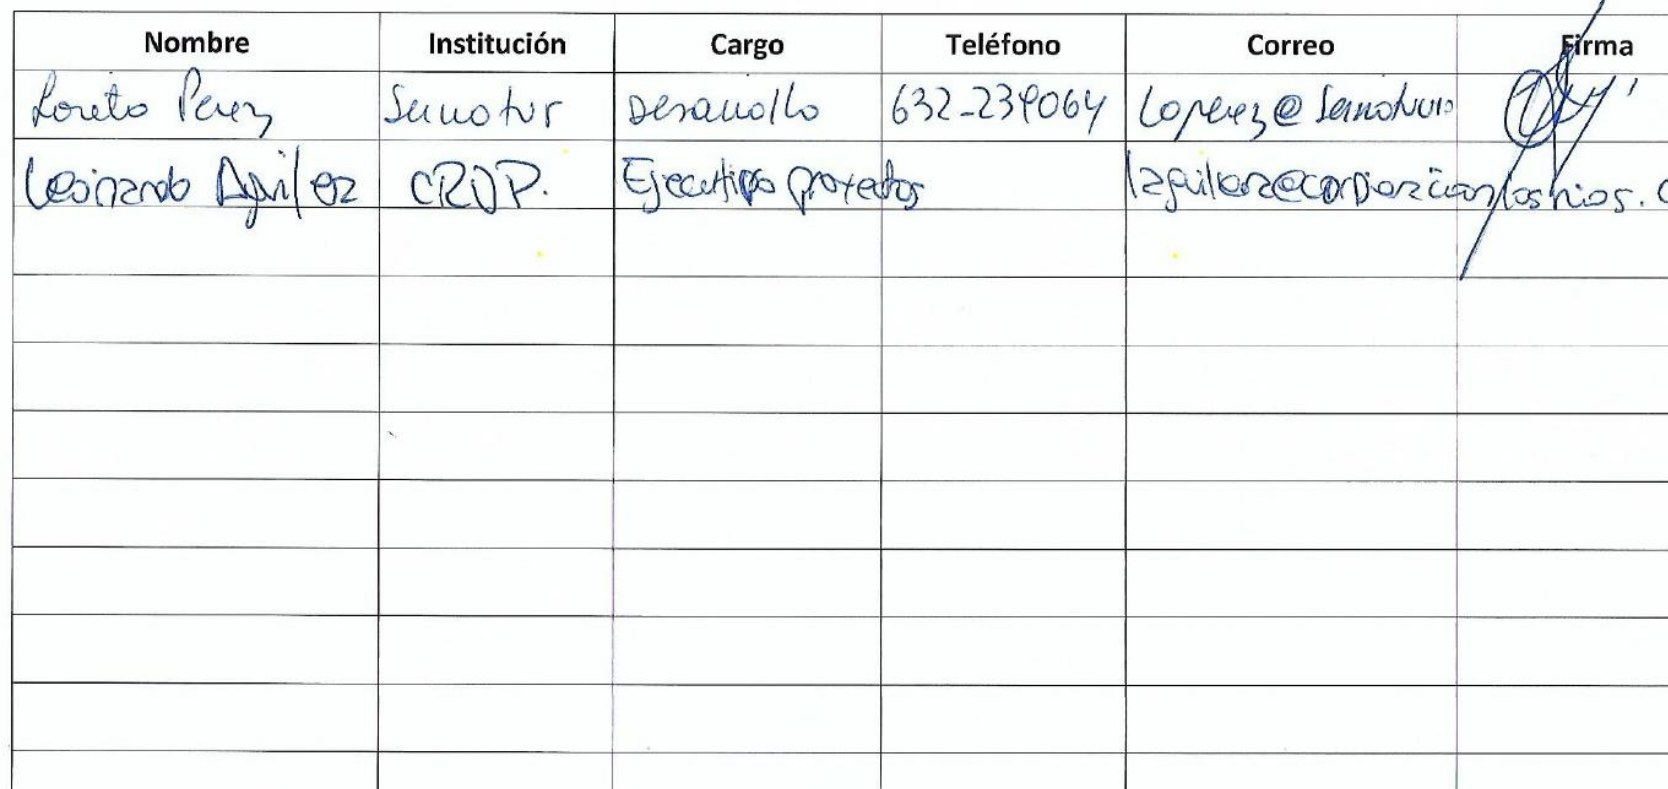 Nombre Institución Cargo Teléfono Correo Firma
Loreto Perez Sernatur Desarrollo 632-239064 Loperez@Sernatur
Leonardo Aguilera CRDP. Ejecutivo proyectos laguilera@corporacionlosrios.c